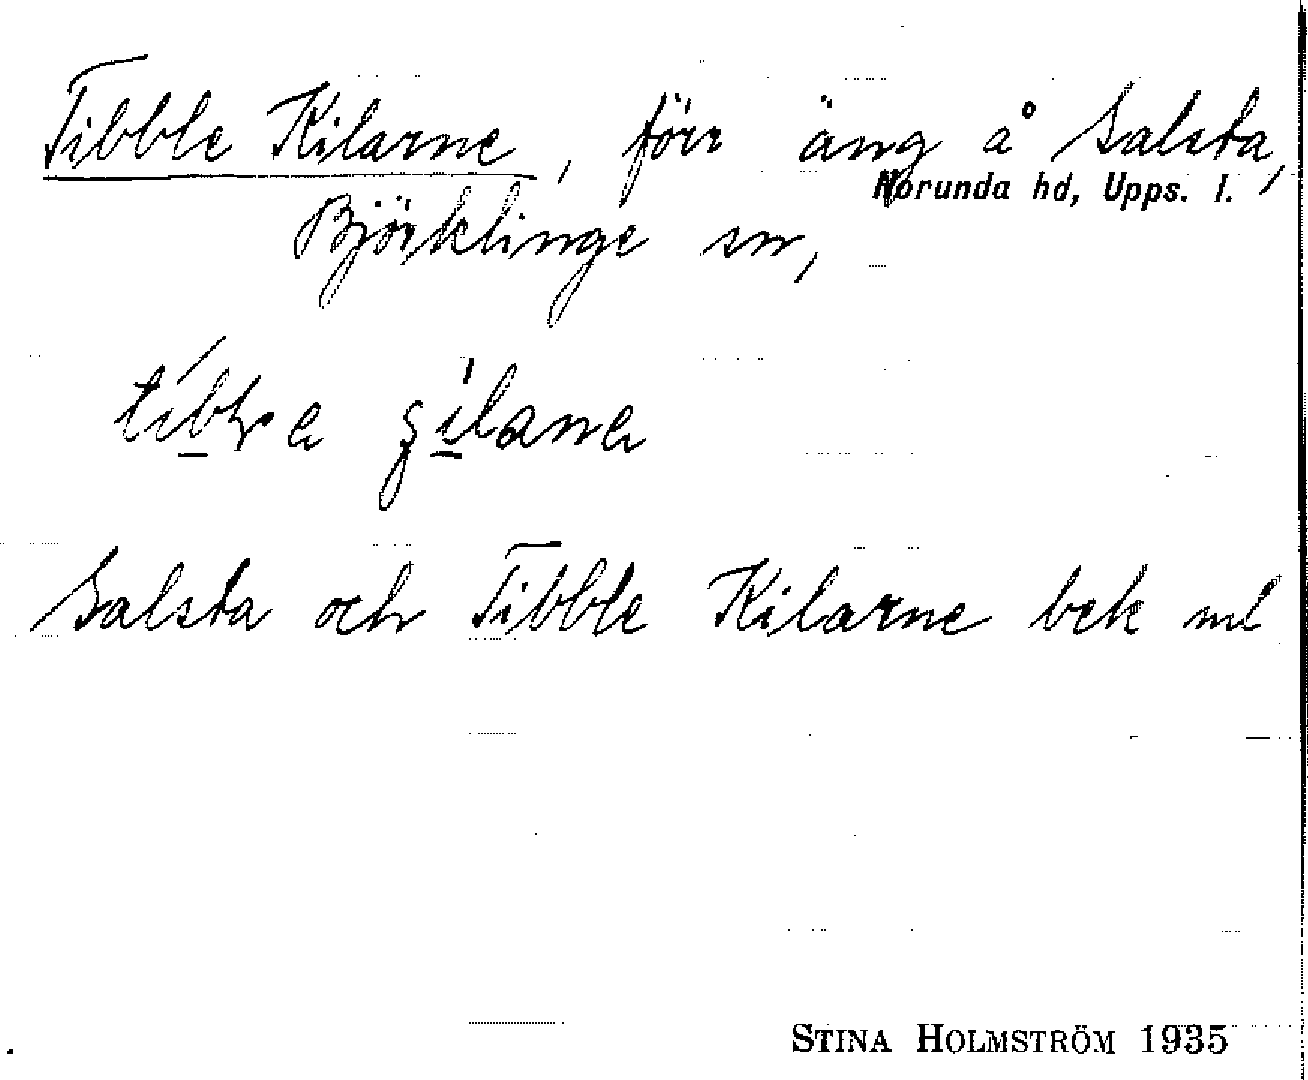 Tibble Kilarne, förr äng å Salsta,
Norunda hd, Upps. l.
Björklinge sn,
Salsta och Tibble Kilarne bek ml
STINA HOLMSTRÖM 1935